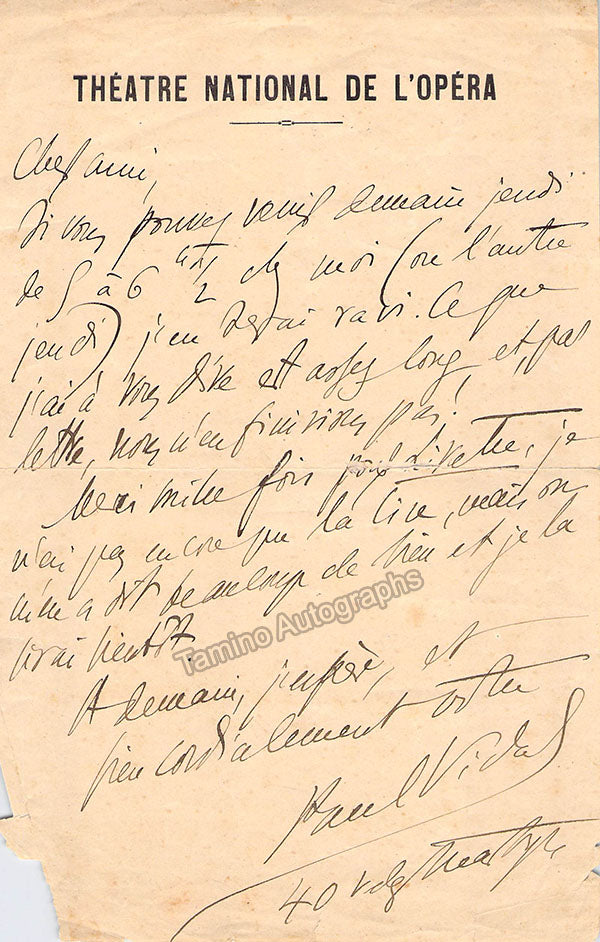 THÉATRE NATIONAL DE L'OPÉRA
Cher ami,
Si vous pouvez venir demain jendi
de 5 à 6 1/2 chez moi (ou l'autre
jeudi) j'en serai ravi. Ce que
j'ai à vous dire est assez long et, par
lettre, nous n'en finirions pas!
Merci mille fois pour, je
n'ai pas encore pu la lire, mais on
m'en a dit beaucoup de bien et je la
lirai bientôt.
A demain, j'espère, et
bien cordialement votre
Paul Vidal
40 rue des Martyrs
Tamino Autographs